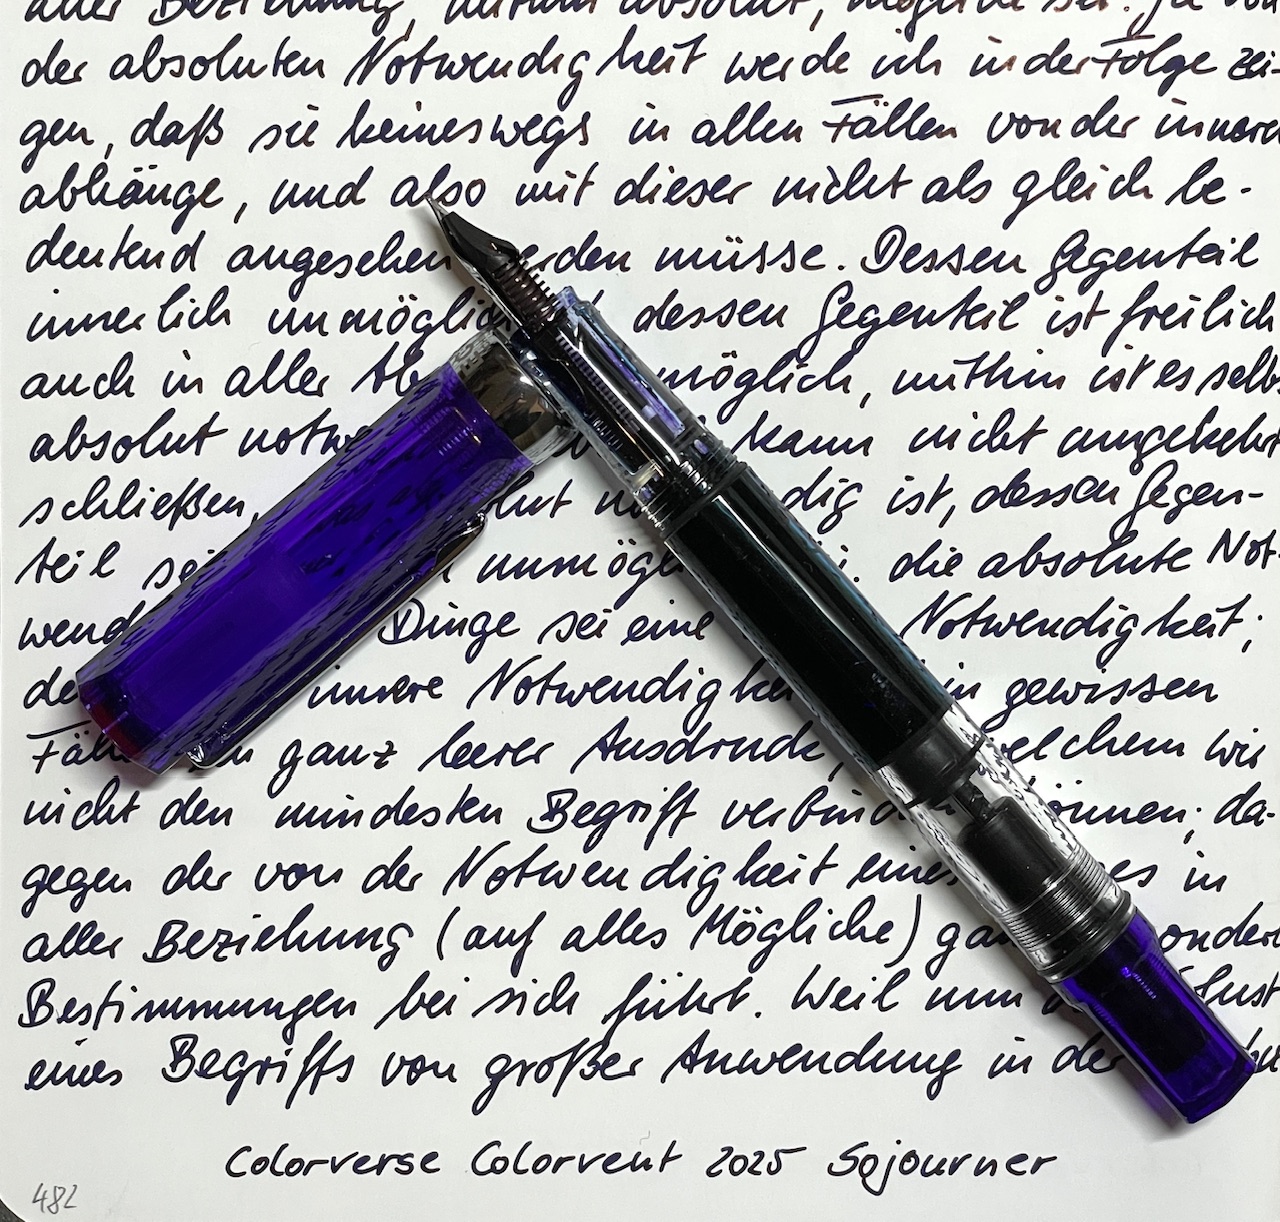 aller Beziehung, mithin absolut, möglich sei. Ja von
der absoluten Notwendigkeit werde ich in der Folge zei-
gen, daß sie keineswegs in allen Fällen von der innern
abhänge, und also mit dieser nicht als gleich be-
deutend angesehen werden müsse. Dessen Gegenteil
innerlich unmöglich dessen Gegenteil ist freilich
auch in aller Ab möglich, mithin ist es selb
absolut notw kann nicht umgekehrt
schließen, was absolut no dig ist, dessen Gegen-
teil sei unmögl die absolute Not-
wend Dinge sei eine Notwendigkeit;
de innere Notwendigkei in gewissen
Fäll ein ganz leerer Ausdruck, welchem wir
nicht den mindesten Begriff verbinden können; da-
gegen der von der Notwendigkeit eines es in
aller Beziehung (auf alles Mögliche) gan sonder
Bestimmungen bei sich führt. Weil nun lust
eines Begriffs von großer Anwendung in der
Colorverse Colorvent 2025 Sojourner
482